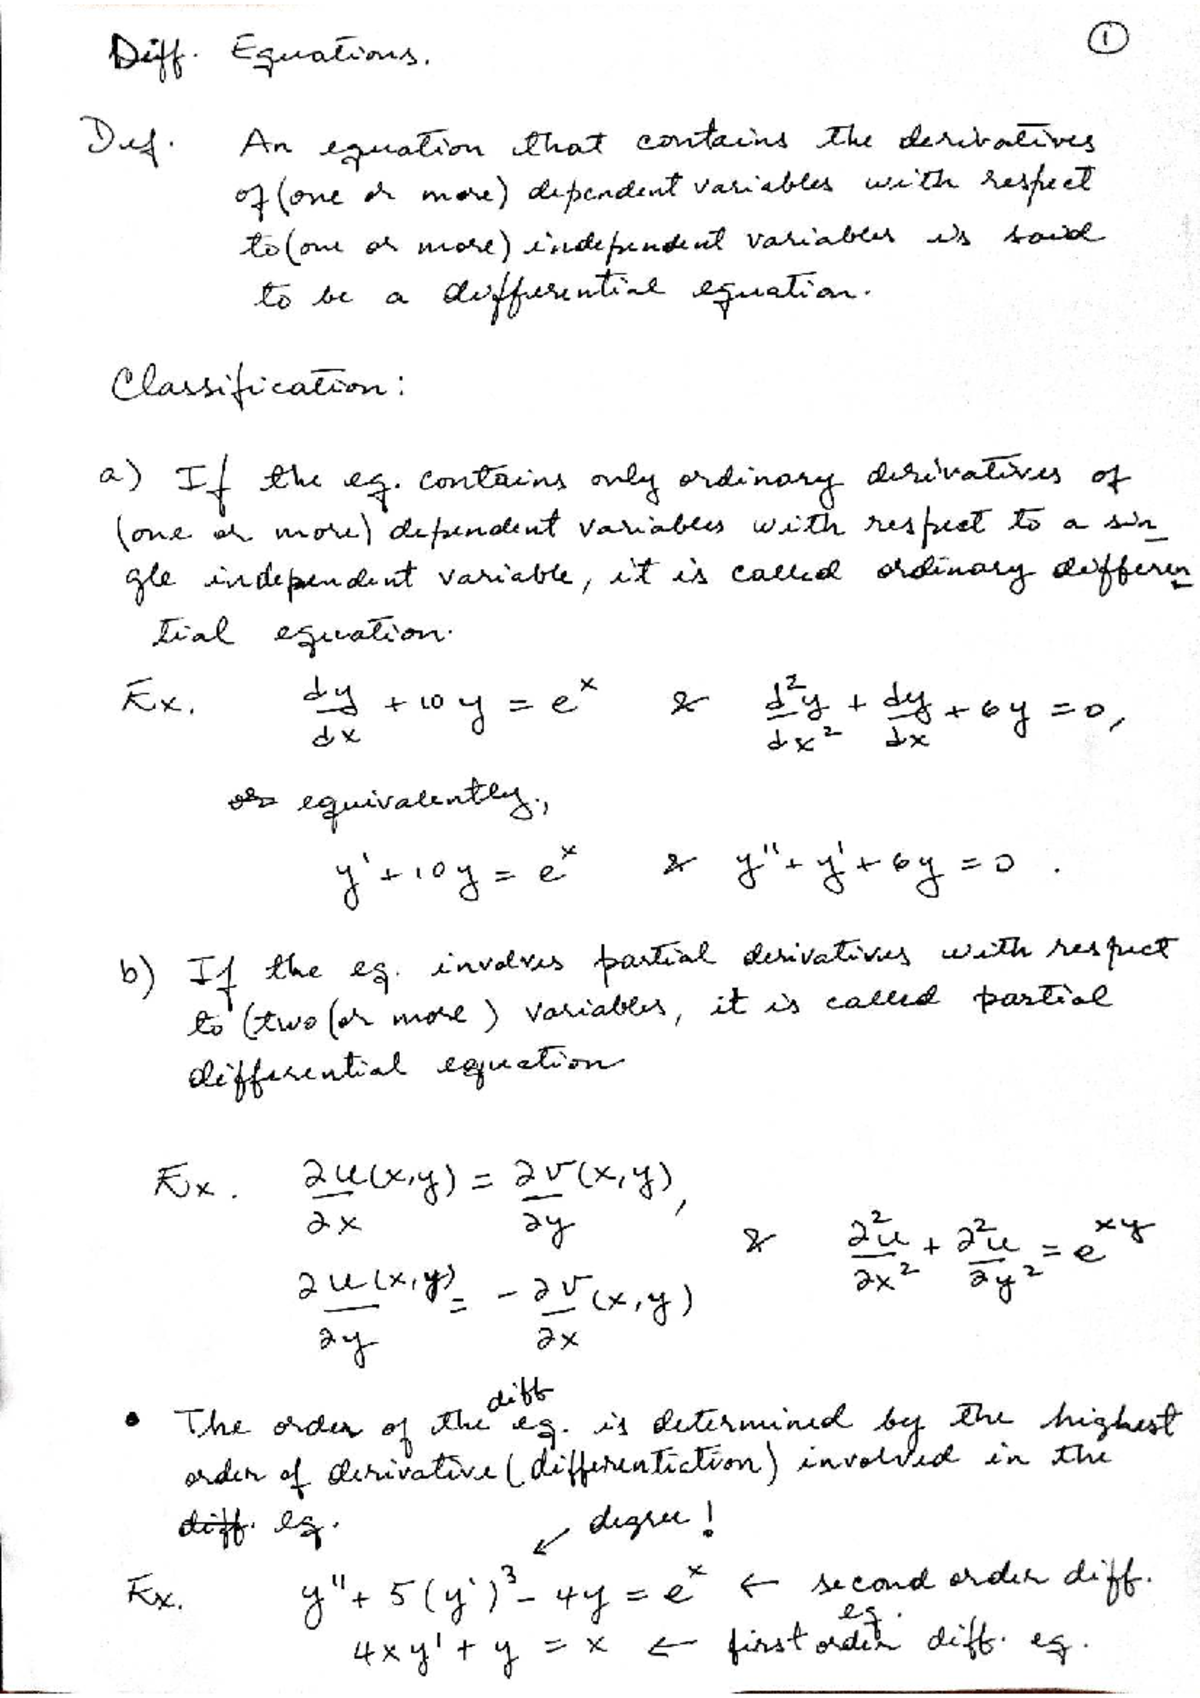 Diff. Equations. ①
Def. An equation that contains the derivatives
of (one or more) dependent variables with respect
to (one or more) independent variables is said
to be a differential equation.
Classification:
a) If the eq. contains only ordinary derivatives of
(one or more) dependent variables with respect to a sin_
gle independent variable, it is called ordinary differen_
tial equation.
Ex. dy/dx + 10y = eˣ & d²y/dx² + dy/dx + 6y = 0,
or equivalently,
y' + 10y = eˣ & y'' + y' + 6y = 0.
b) If the eq. involves partial derivatives with respect
to (two (or more) variables, it is called partial
differential equation
Ex. ∂u(x,y)/∂x = ∂v(x,y)/∂y,
∂u(x,y)/∂y = -∂v/∂x(x,y) & ∂²u/∂x² + ∂²u/∂y² = e^xy
• The order of the diff eq. is determined by the highest
order of derivative (differentiction) involved in the
diff. eq.
degree!
Ex. y'' + 5(y')³ - 4y = eˣ ← second order diff. eq.
4xy' + y = x ← first order diff. eq.